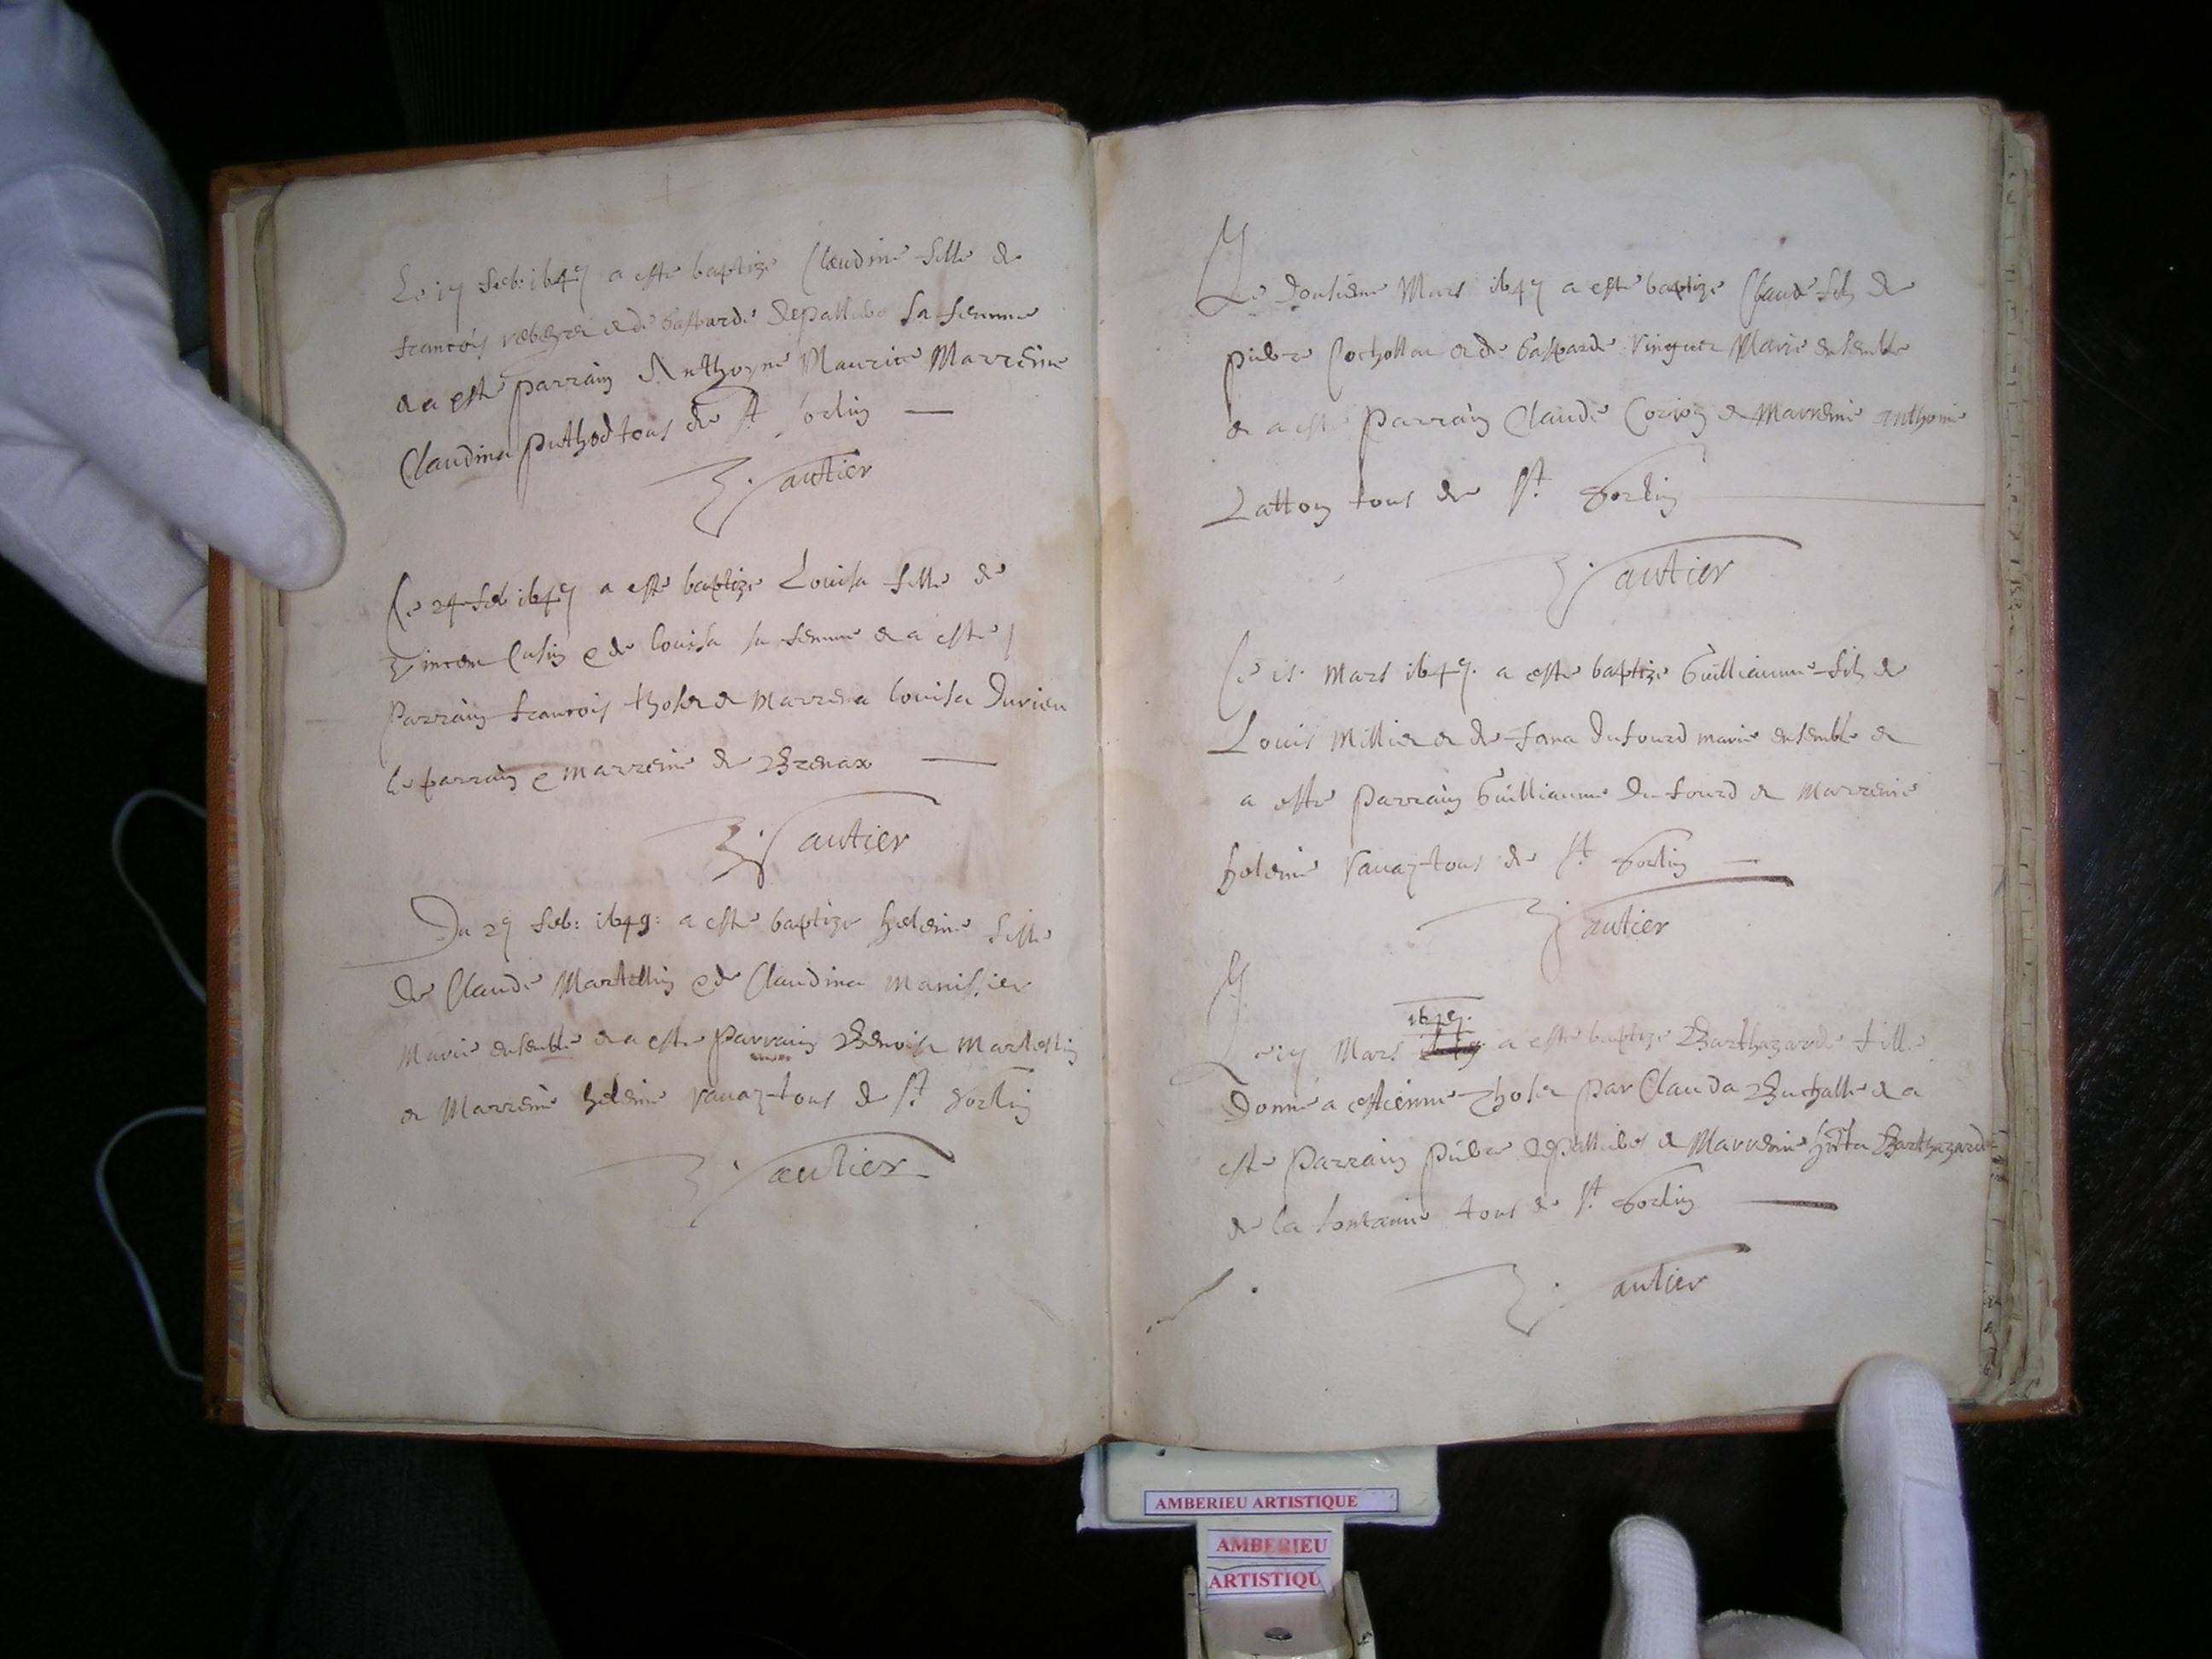 Le 17 feb: 1649 a este baptize Claudine fille de
francois et de gasparde depalluos sa femme
et a este parrain Anthoyne Maurice Marreine
Claudina puthod tous de St sorlin
Gautier
Le 24 feb 1649 a este baptize Louisa fille de
Vincen Cusin e de louisa sa femme et a este
parrain francois thoset et marrena louisa Durieu
le parrain e marreine de Brenax
Gautier
Du 27 feb: 1649: a este baptize heleine fille
de Claude Martellin e de Claudina manissier
Marie ensemble et a este parrain Benoist Martellin
et Marreine heleine ravaz tous de St sorlin
Gautier
Le dousieme Mars 1649 a este baptize Claude fils de
pierre Cochollat et de Gasparde vinguer Marie ensemble
et a este parrain Claude Corion et Marreine anthoine
Latton tous de St sorlin
Gautier
Le 15. Mars 1649. a este baptize Guilliaume fils de
Louis Millier et de Jana Dufourd marie ensemble et
a este parrain Guilliaume Du fourd et Marreine
heleine ravaz tous de St sorlin
Gautier
1649.
Le 17 Mars a este baptize Barthazarde fille
Donne a estienne Thoset par Clauda Buchalle et a
este parrain pierre depalluos et Marreine Barthazarde
de la fontaine tous de St sorlin
Gautier
AMBERIEU ARTISTIQUE
AMBERIEU
ARTISTIQU